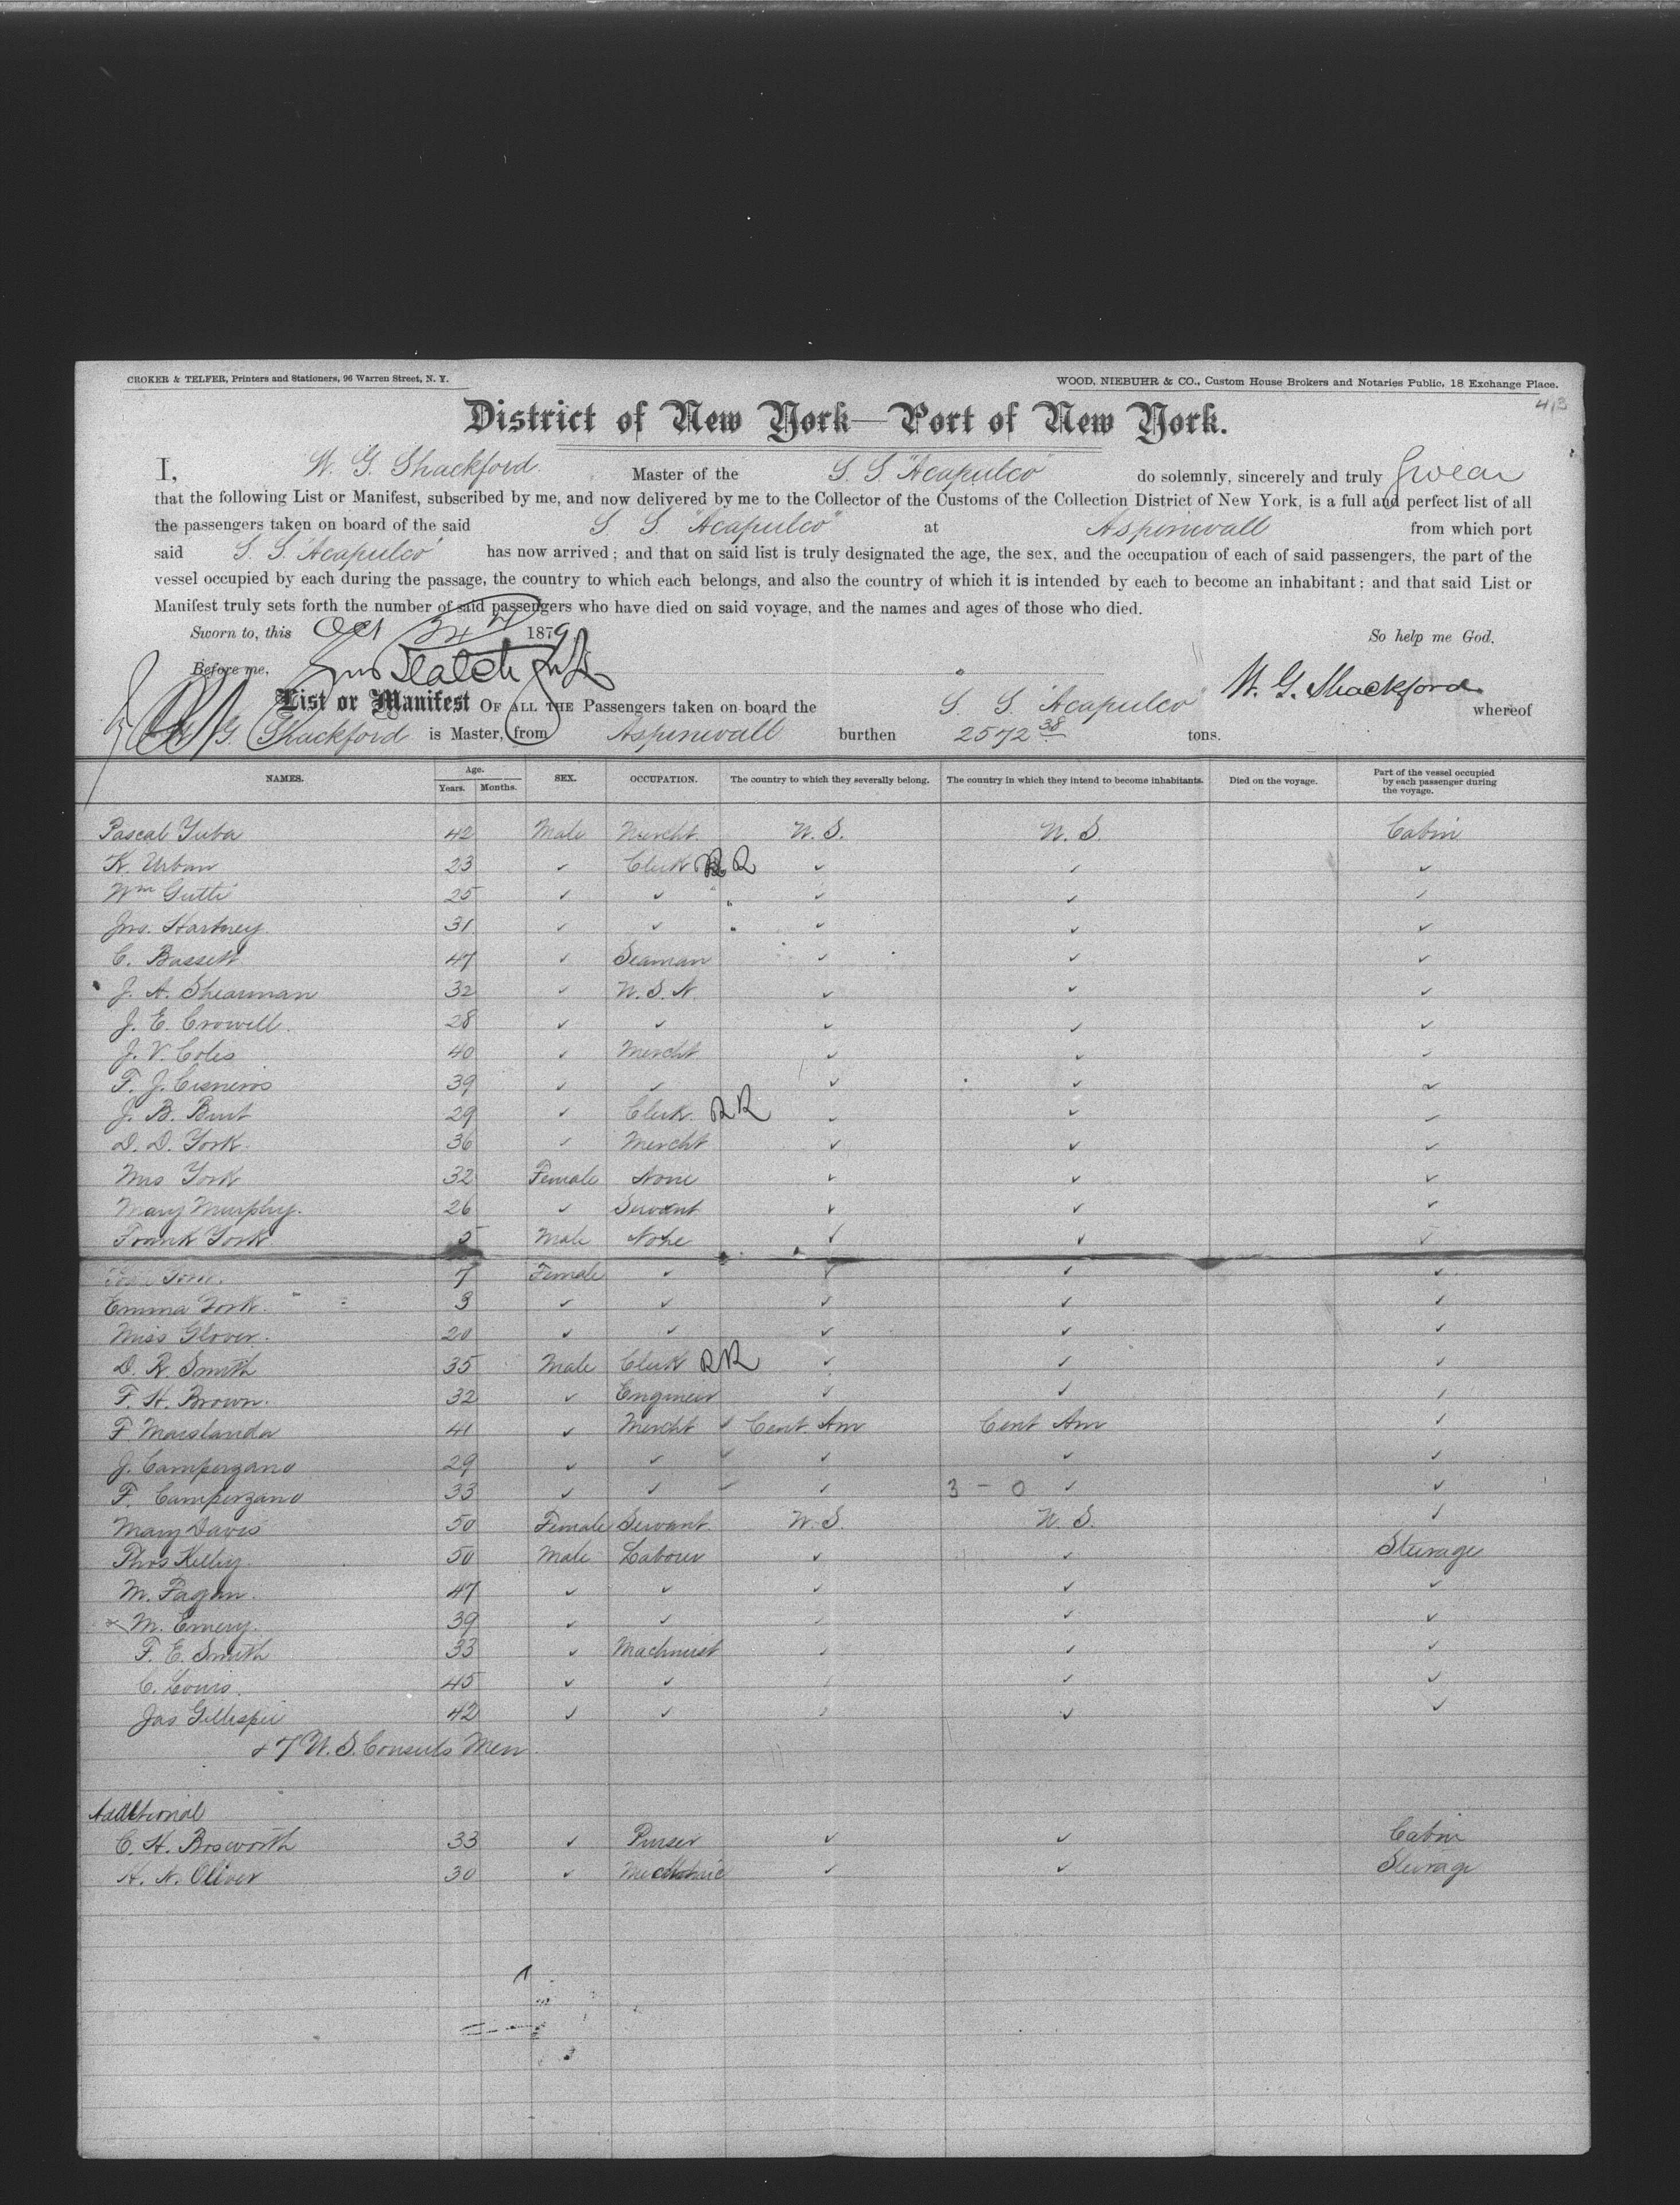 CROKER & TELFER, Printers and Stationers, 96 Warren Street, N. Y.
WOOD, NIEBUHR & CO., Custom House Brokers and Notaries Public, 18 Exchange Place.
413
District of New York—Port of New York.
I, W. G. Shackford Master of the S. S. "Acapulco" do solemnly, sincerely and truly Swear
that the following List or Manifest, subscribed by me, and now delivered by me to the Collector of the Customs of the Collection District of New York, is a full and perfect list of all
the passengers taken on board of the said S. S. "Acapulco" at Aspinwall from which port
said S. S. "Acapulco" has now arrived; and that on said list is truly designated the age, the sex, and the occupation of each of said passengers, the part of the
vessel occupied by each during the passage, the country to which each belongs, and also the country of which it is intended by each to become an inhabitant; and that said List or
Manifest truly sets forth the number of said passengers who have died on said voyage, and the names and ages of those who died.
Sworn to, this Oct 24 1879 So help me God.
Before me, W. G. Shackford
List or Manifest OF ALL THE Passengers taken on board the S. S. "Acapulco" whereof
W. G. Shackford is Master, from Aspinwall burthen 2572 38 tons.
NAMES. Age. Years. Months. SEX. OCCUPATION. The country to which they severally belong. The country in which they intend to become inhabitants. Died on the voyage. Part of the vessel occupied by each passenger during the voyage.
Pascal Yuba 42 Male Mercht. U. S. U. S. Cabin
K. Urban 23 ✓ Clerk RR ✓ ✓ ✓
Wm 25 ✓ ✓ " ✓ ✓ ✓
Jno. Hartney 31 ✓ ✓ " ✓ ✓ ✓
C. Bassett 47 ✓ Seaman ✓ ✓ ✓
J. A. Shearman 32 ✓ U. S. N. ✓ ✓ ✓
J. E. Crowell. 28 ✓ ✓ ✓ ✓ ✓
J. V. Coles 40 ✓ Mercht ✓ ✓ ✓
F. J. Cisneros 39 ✓ ✓ ✓ ✓ ✓
J. B. Burt 29 ✓ Clerk. RR ✓ ✓ ✓
D. D. York 36 ✓ Mercht ✓ ✓ ✓
Mrs York 32 Female None ✓ ✓ ✓
Mary Murphy. 26 ✓ Servant ✓ ✓ ✓
Frank York 5 Male None ✓ ✓ ✓
York. 7 Female ✓ ✓ ✓ ✓
Emma York. 3 ✓ ✓ ✓ ✓ ✓
Miss Glover. 20 ✓ ✓ ✓ ✓ ✓
D. R. Smith 35 Male Clerk RR ✓ ✓ ✓
F. H. Brown. 32 ✓ Engineer ✓ ✓ ✓
F. 41 ✓ Mercht ✓ Cent. Am Cent Am ✓
J. Camperzano 29 ✓ ✓ ✓ ✓ ✓ ✓
F. Camperzano 33 ✓ ✓ ✓ ✓ 3 - 0 ✓ ✓
Mary Davis 50 Female Servant. U. S. U. S. ✓
Thos Kelley. 50 Male Laborer ✓ ✓ Steerage
M. Fagan. 47 ✓ ✓ ✓ ✓ ✓
M. Emery. 39 ✓ ✓ ✓ ✓ ✓
F. E. Smith 33 ✓ Machinist ✓ ✓ ✓
C. Louis. 45 ✓ ✓ ✓ ✓ ✓
Jas Gillespie 42 ✓ ✓ ✓ ✓ ✓
+ 7 U. S. Consuls Men.
Additional
C. H. Bosworth 33 ✓ Purser ✓ ✓ Cabin
A. N. Oliver 30 ✓ Mechanic ✓ ✓ Steerage